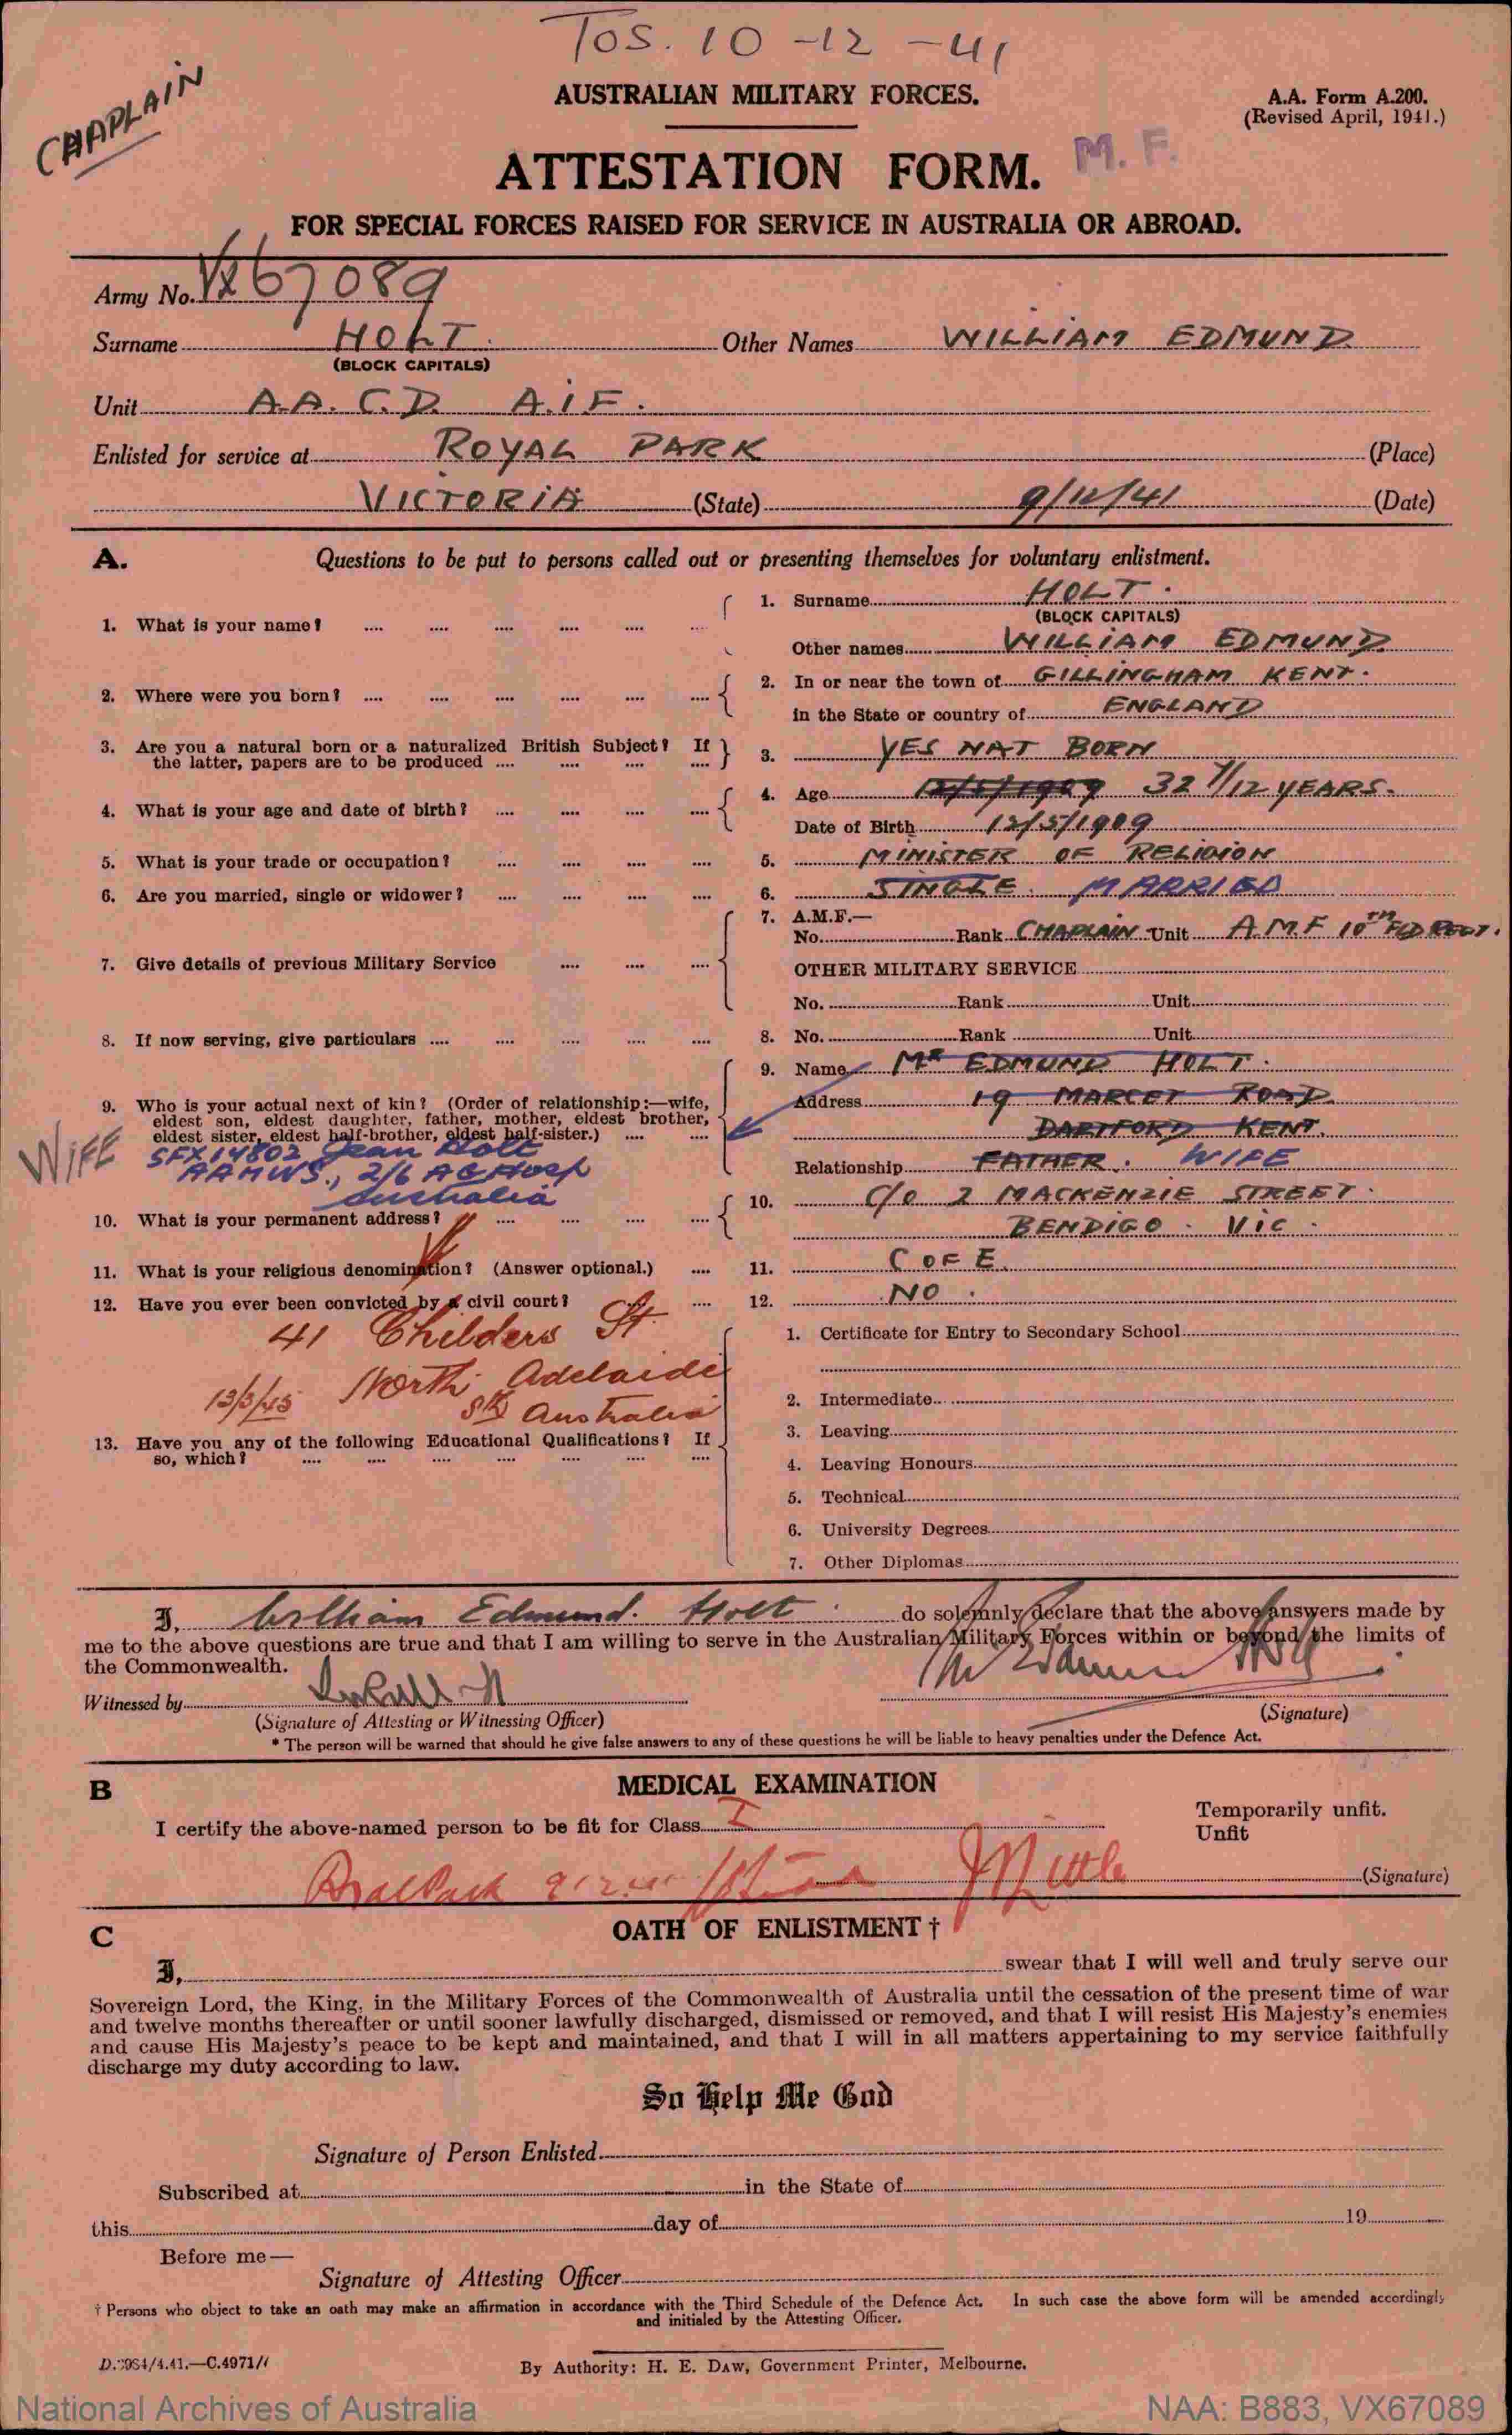 TOS. 10-12-41
CHAPLAIN
AUSTRALIAN MILITARY FORCES.
A.A. Form A.200.
(Revised April, 1941.)
ATTESTATION FORM. M. F.
FOR SPECIAL FORCES RAISED FOR SERVICE IN AUSTRALIA OR ABROAD.
Army No. VX67089
Surname HOLT. Other Names WILLIAM EDMUND
(BLOCK CAPITALS)
Unit A.A.C.D. A.I.F.
Enlisted for service at ROYAL PARK (Place)
VICTORIA (State) 9/12/41 (Date)
A. Questions to be put to persons called out or presenting themselves for voluntary enlistment.
1. What is your name? 1. Surname HOLT.
(BLOCK CAPITALS)
Other names WILLIAM EDMUND
2. Where were you born? 2. In or near the town of GILLINGHAM KENT.
in the State or country of ENGLAND
3. Are you a natural born or a naturalized British Subject? If
the latter, papers are to be produced 3. YES NAT BORN
4. What is your age and date of birth? 4. Age 12/5/1909 32 7/12 YEARS.
Date of Birth 12/5/1909
5. What is your trade or occupation? 5. MINISTER OF RELIGION
6. Are you married, single or widower? 6. SINGLE. MARRIED
7. Give details of previous Military Service 7. A.M.F.—
No. Rank CHAPLAIN Unit A.M.F 10TH FLD REGT.
OTHER MILITARY SERVICE
No. Rank Unit
8. If now serving, give particulars 8. No. Rank Unit
9. Who is your actual next of kin? (Order of relationship:—wife,
eldest son, eldest daughter, father, mother, eldest brother,
eldest sister, eldest half-brother, eldest half-sister.)
9. Name MR EDMUND HOLT.
Address 19 MARCET ROAD
DARTFORD KENT.
Relationship FATHER. WIFE
Wife SFX14802 Jean Holt
AAMWS., 2/6 AG Hosp
Australia
10. What is your permanent address? 10. C/o 2 MACKENZIE STREET.
BENDIGO. VIC.
11. What is your religious denomination? (Answer optional.) 11. C OF E.
12. Have you ever been convicted by a civil court? 12. NO.
41 Childers St.
North Adelaide
13/3/45
Sth Australia
13. Have you any of the following Educational Qualifications? If
so, which?
1. Certificate for Entry to Secondary School
2. Intermediate
3. Leaving
4. Leaving Honours
5. Technical
6. University Degrees
7. Other Diplomas
I, William Edmund. Holt. do solemnly declare that the above answers made by
me to the above questions are true and that I am willing to serve in the Australian Military Forces within or beyond the limits of
the Commonwealth.
Witnessed by
(Signature of Attesting or Witnessing Officer) (Signature)
* The person will be warned that should he give false answers to any of these questions he will be liable to heavy penalties under the Defence Act.
B MEDICAL EXAMINATION
I certify the above-named person to be fit for Class I
Temporarily unfit.
Unfit
(Signature)
C OATH OF ENLISTMENT †
I, swear that I will well and truly serve our
Sovereign Lord, the King, in the Military Forces of the Commonwealth of Australia until the cessation of the present time of war
and twelve months thereafter or until sooner lawfully discharged, dismissed or removed, and that I will resist His Majesty's enemies
and cause His Majesty's peace to be kept and maintained, and that I will in all matters appertaining to my service faithfully
discharge my duty according to law.
So Help Me God
Signature of Person Enlisted
Subscribed at in the State of
this day of 19
Before me—
Signature of Attesting Officer
† Persons who object to take an oath may make an affirmation in accordance with the Third Schedule of the Defence Act. In such case the above form will be amended accordingly
and initialed by the Attesting Officer.
By Authority: H. E. DAW, Government Printer, Melbourne.
National Archives of Australia NAA: B883, VX67089